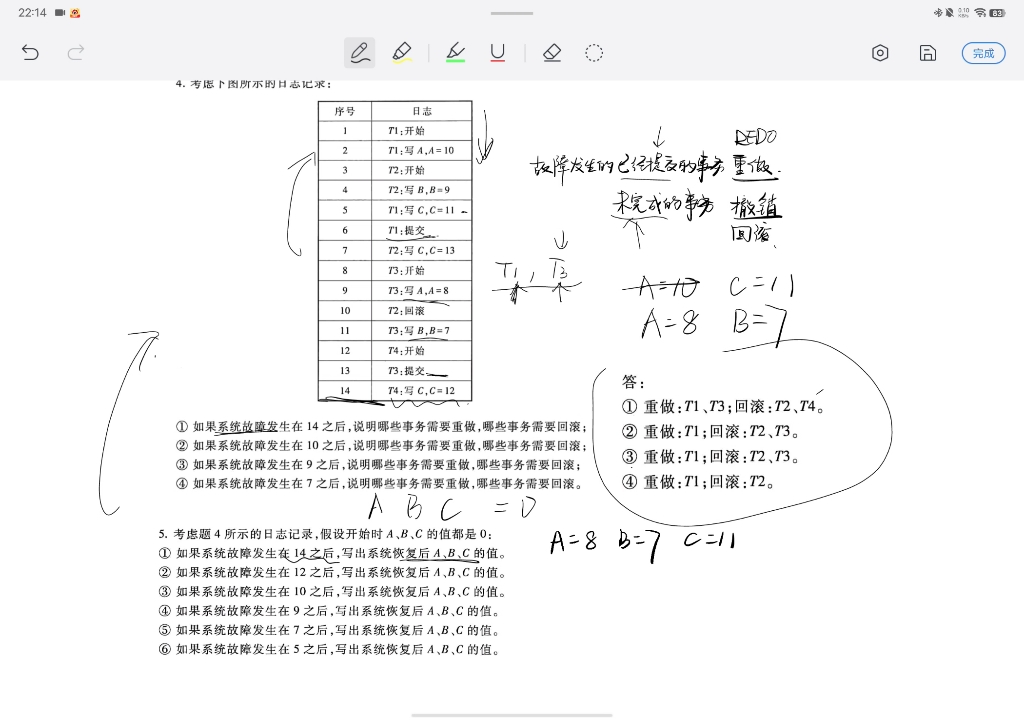 22:14
0.10 KB/s
83
完成
4. 考虑下图所示的日志记录:
序号 日志
1 T1:开始
2 T1:写 A,A=10
3 T2:开始
4 T2:写 B,B=9
5 T1:写 C,C=11
6 T1:提交
7 T2:写 C,C=13
8 T3:开始
9 T3:写 A,A=8
10 T2:回滚
11 T3:写 B,B=7
12 T4:开始
13 T3:提交
14 T4:写 C,C=12
REDO
故障发生的已经提交的事务 重做.
未完成的事务 撤销
回滚.
T1, T3
A=10 C=11
A=8 B=7
① 如果系统故障发生在 14 之后,说明哪些事务需要重做,哪些事务需要回滚;
② 如果系统故障发生在 10 之后,说明哪些事务需要重做,哪些事务需要回滚;
③ 如果系统故障发生在 9 之后,说明哪些事务需要重做,哪些事务需要回滚;
④ 如果系统故障发生在 7 之后,说明哪些事务需要重做,哪些事务需要回滚。
答:
① 重做:T1、T3;回滚:T2、T4。
② 重做:T1;回滚:T2、T3。
③ 重做:T1;回滚:T2、T3。
④ 重做:T1;回滚:T2。
A B C = 0
5. 考虑题 4 所示的日志记录,假设开始时 A、B、C 的值都是 0:
① 如果系统故障发生在 14 之后,写出系统恢复后 A、B、C 的值。
② 如果系统故障发生在 12 之后,写出系统恢复后 A、B、C 的值。
③ 如果系统故障发生在 10 之后,写出系统恢复后 A、B、C 的值。
④ 如果系统故障发生在 9 之后,写出系统恢复后 A、B、C 的值。
⑤ 如果系统故障发生在 7 之后,写出系统恢复后 A、B、C 的值。
⑥ 如果系统故障发生在 5 之后,写出系统恢复后 A、B、C 的值。
A=8 B=7 C=11